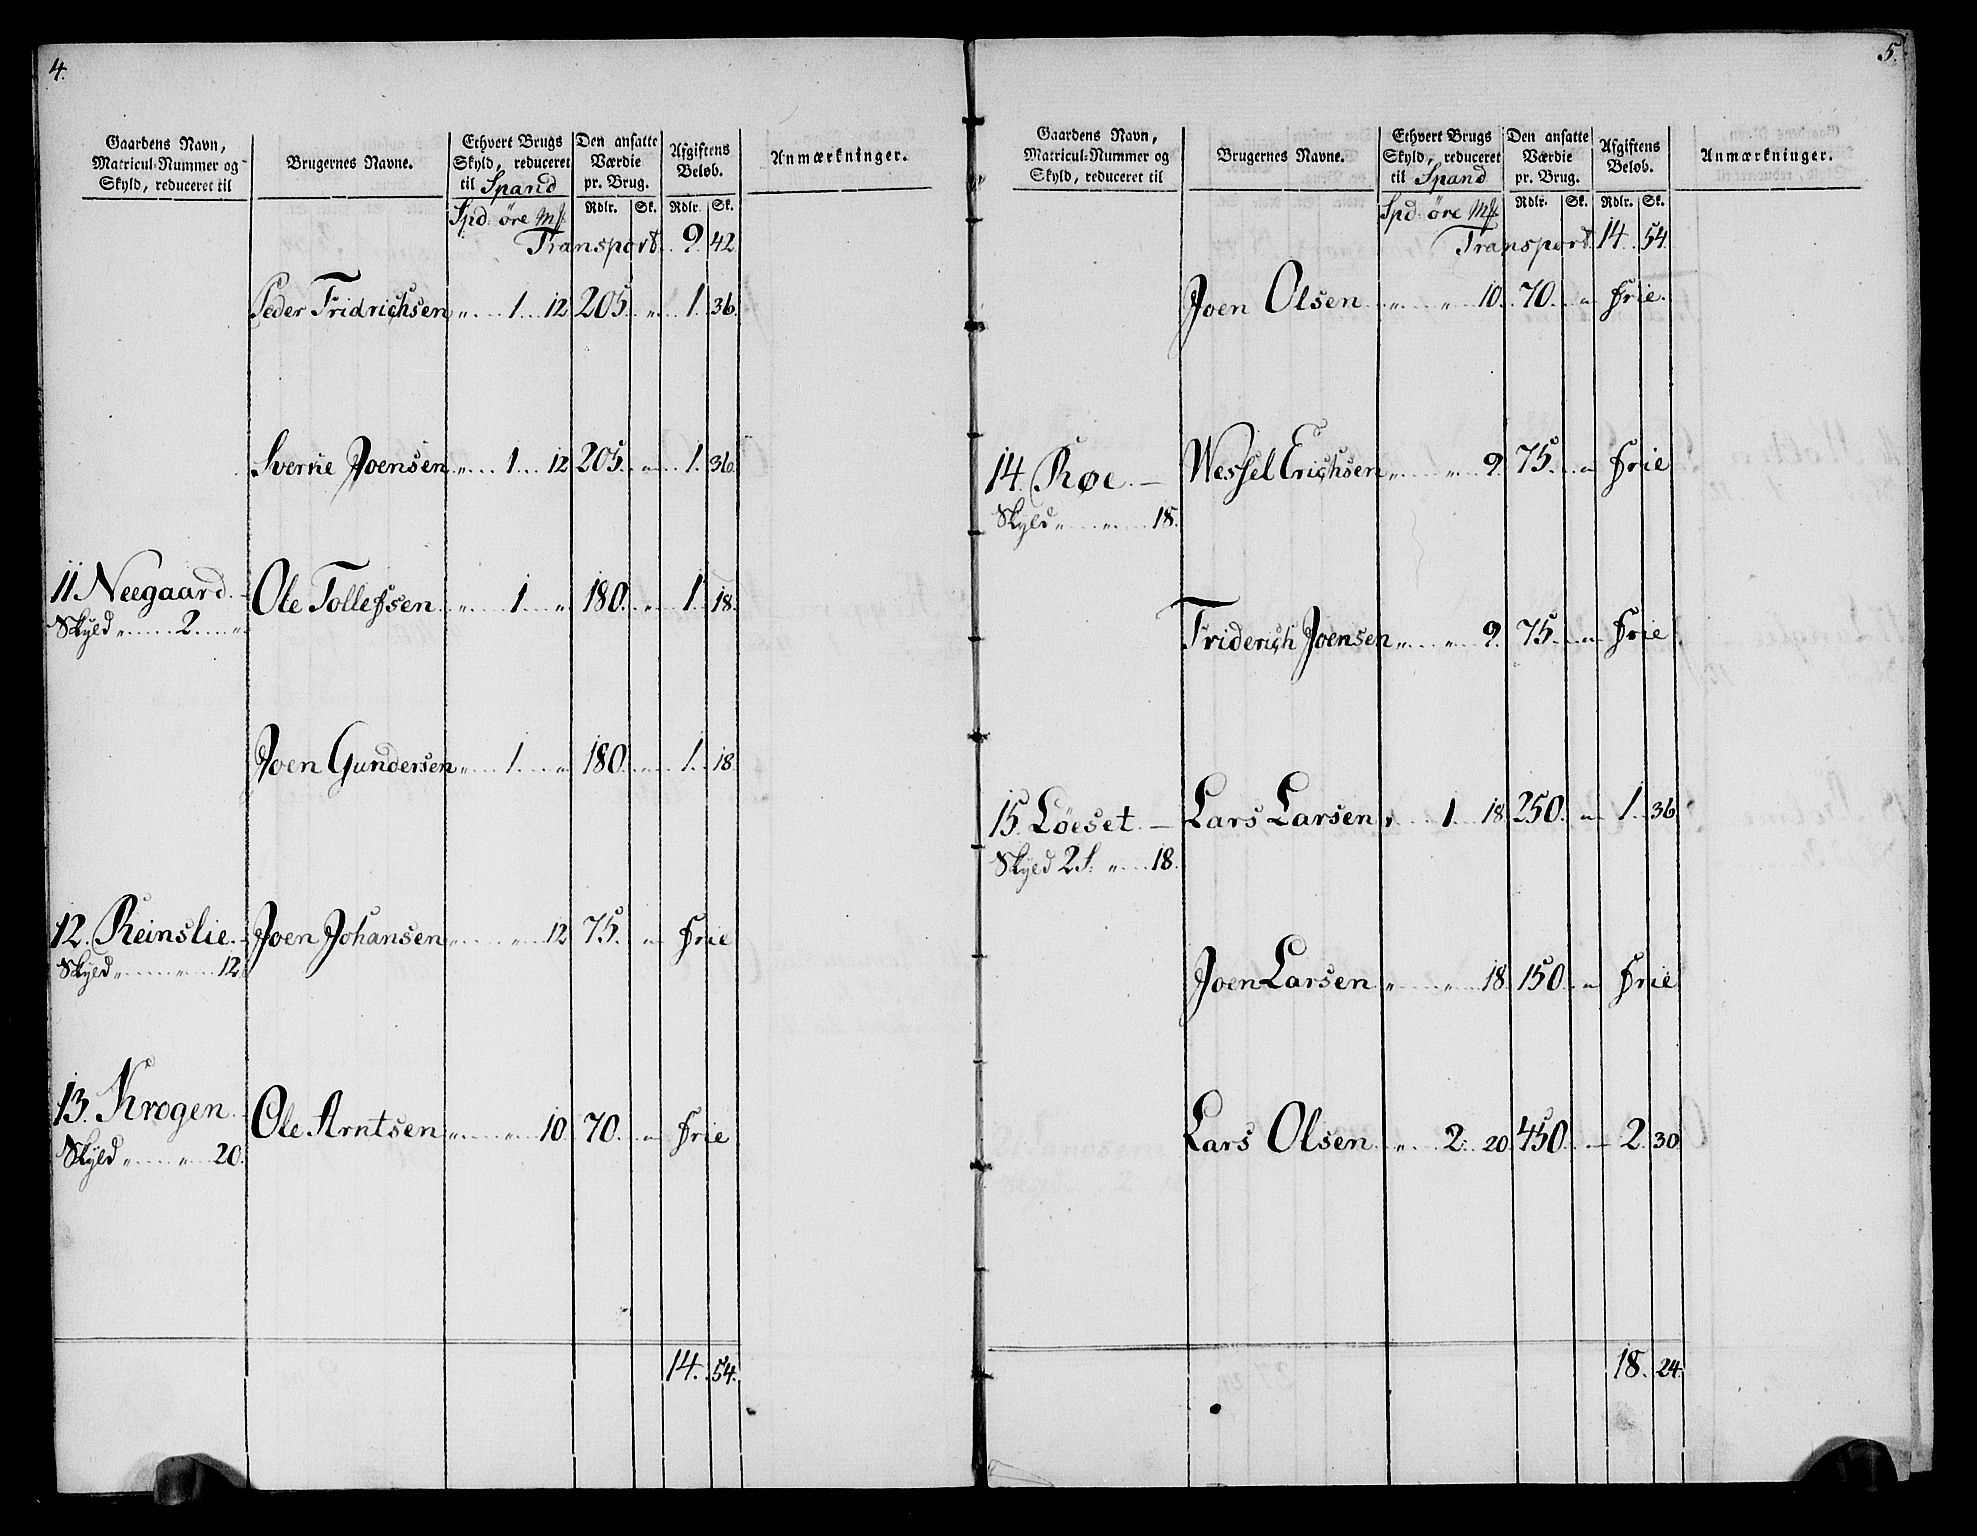 4.
Gaardens Navn, Matricul-Nummer og Skyld, reduceret til | Brugernes Navne. | Ethvert Brugs Skyld, reduceret til Spand | Den ansatte Værdie pr. Brug. | Afgiftens Beløb. | Anmærkninger.
Spd: öre Mk: | Rdlr. | Sk. | Rdlr. | Sk.
Transport. 9. 42
Peder Fridrichsen „ 1 12 205 „ 1. 36.
Sverne Joensen „ 1 12 205. „ 1. 36.
11 Neegaard. Ole Tollefsen „ 1 „ 180. „ 1. 18.
Skyld „ 2 „
Joen Gundersen „ 1 „ 180. „ 1. 18.
12. Reinslie. Joen Johansen „ „ 12 75. „ frie
Skyld „ „ 12.
13. Krogen. Ole Arntsen „ „ 10 70. „ frie
Skyld „ „ 20.
14. 54.
5.
Gaardens Navn, Matricul-Nummer og Skyld, reduceret til | Brugernes Navne. | Ethvert Brugs Skyld, reduceret til Spand | Den ansatte Værdie pr. Brug. | Afgiftens Beløb. | Anmærkninger.
Spd: öre Mk: | Rdlr. | Sk. | Rdlr. | Sk.
Transport. 14. 54.
Joen Olsen „ „ 10. 70. „ frie.
14. Røe. — Wessel Erichsen „ „ 9. 75. „ frie
Skyld „ „ 18.
Friderich Joensen „ „ 9. 75. „ frie
15. Löeset. — Lars Larsen „ 1 18 250. „ 1. 36.
Skyld 2 S: „ 18.
Joen Larsen „ „ 18 150 „ frie
Lars Olsen „ 2. 20 450. — 2. 30
18. 24.